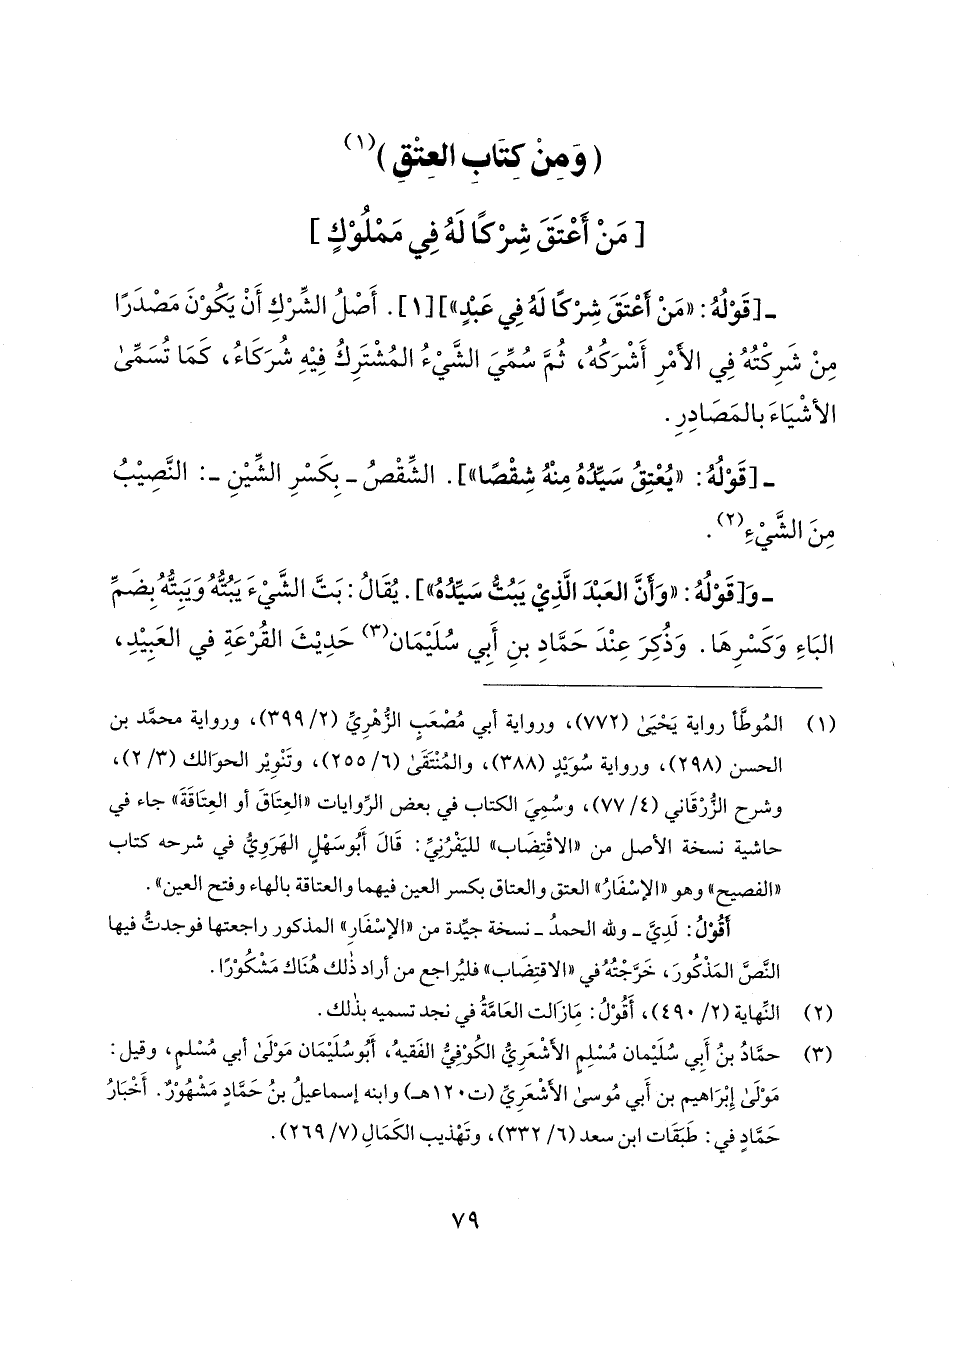 (وَمِنْ كِتَابِ العِتْقِ)(١)
[مَنْ أَعْتَقَ شِرْكًا لَهُ فِي مَمْلُوْكٍ]
ـ[قَوْلُهُ: «مَنْ أَعْتَقَ شِرْكًا لَهُ فِي عَبْدٍ»][١]. أَصْلُ الشِّرْكِ أَنْ يَكُوْنَ مَصْدَرًا
مِنْ شَرِكْتُهُ فِي الأَمْرِ أَشْرَكُهُ، ثُمَّ سُمِّيَ الشَّيْءُ المُشْتَرِكُ فِيْهِ شُرَكَاءُ، كَمَا تُسَمَّىٰ
الأَشْيَاءَ بالمَصَادِرِ.
ـ [قَوْلُهُ: «يُعْتِقُ سَيِّدُهُ مِنْهُ شِقْصًا»]. الشِّقْصُ ـ بِكَسْرِ الشِّيْنِ ـ: النَّصِيْبُ
مِنَ الشَّيْءِ(٢).
ـ وَ[قَوْلُهُ: «وَأَنَّ العَبْدَ الَّذِيْ يَبُتُّ سَيِّدُهُ»]. يُقَالُ: بَتَّ الشَّيْءَ يَبُتُّهُ وَيَبِتُّهُ بِضَمِّ
البَاءِ وَكَسْرِهَا. وَذُكِرَ عِنْدَ حَمَّادِ بنِ أَبِي سُلَيْمَان(٣) حَدِيْثَ القُرْعَةِ في العَبِيْدِ،
(١) المُوطَّأ رواية يَحْيَىٰ (٧٧٢)، ورواية أبي مُصْعَبٍ الزُّهْرِيِّ (٢/ ٣٩٩)، ورواية محمَّد بن
الحسن (٢٩٨)، ورواية سُوَيْدٍ (٣٨٨)، والمُنْتَقَىٰ (٦/ ٢٥٥)، وتَنْوِيْر الحوالك (٣/ ٢)،
وشرح الزُّرْقَاني (٤/ ٧٧)، وسُمِيَ الكتاب في بعض الرِّوايات «العِتَاقَ أو العِتَاقَةَ» جاء في
حاشية نسخة الأصل من «الاقْتِضَاب» لليَفْرُنِيِّ: قَالَ أَبُوسَهْلٍ الهَرَوِيُّ في شرحه كتاب
«الفصيح» وهو «الإسْفَارُ» العتق والعتاق بكسر العين فيهما والعتاقة بالهاء وفتح العين».
أَقُوْلُ: لَدِيَّ ـ ولله الحمدُ ـ نسخة جيِّدة من «الإسْفَارِ» المذكور راجعتها فوجدتُ فيها
النَّصَّ المَذْكُورَ، خَرَّجْتُهُ في «الاقتِضَاب» فليُراجع من أراد ذٰلك هُنَاك مَشْكُوْرًا.
(٢) النِّهاية (٢/ ٤٩٠)، أَقُوْلُ: مَازَالت العَامَّةُ في نجد تسميه بذٰلك.
(٣) حمَّادُ بنُ أَبِي سُلَيْمان مُسْلِمٍ الأَشْعَرِيُّ الكُوْفِيُّ الفَقيهُ، أَبُوسُلَيْمَان مَوْلَىٰ أبي مُسْلمٍ، وقيل:
مَوْلَىٰ إِبْرَاهيم بن أَبي مُوسىٰ الأَشْعَرِيِّ (ت١٢٠هـ) وابنه إسماعيل بنُ حَمَّادٍ مَشْهُوْرٌ. أَخْبَارُ
حَمَّادٍ في: طَبَقَات ابن سعد (٦/ ٣٣٢)، وتَهْذِيب الكَمَالِ (٧/ ٢٦٩).
٧٩